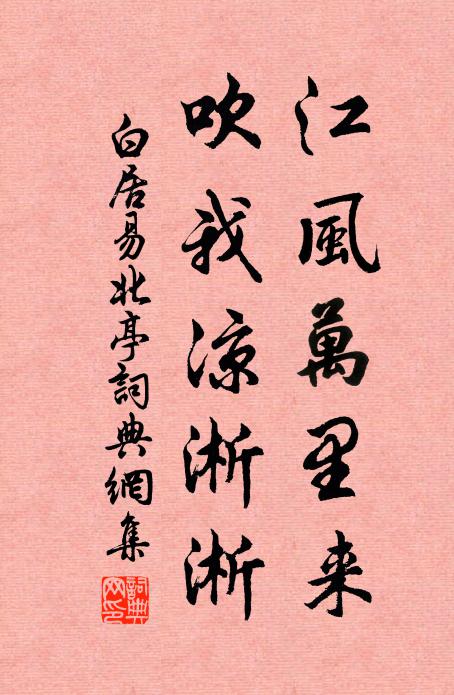 江風萬里来
吹我涼淅淅
白居易北亭詞典網集
詞典网印